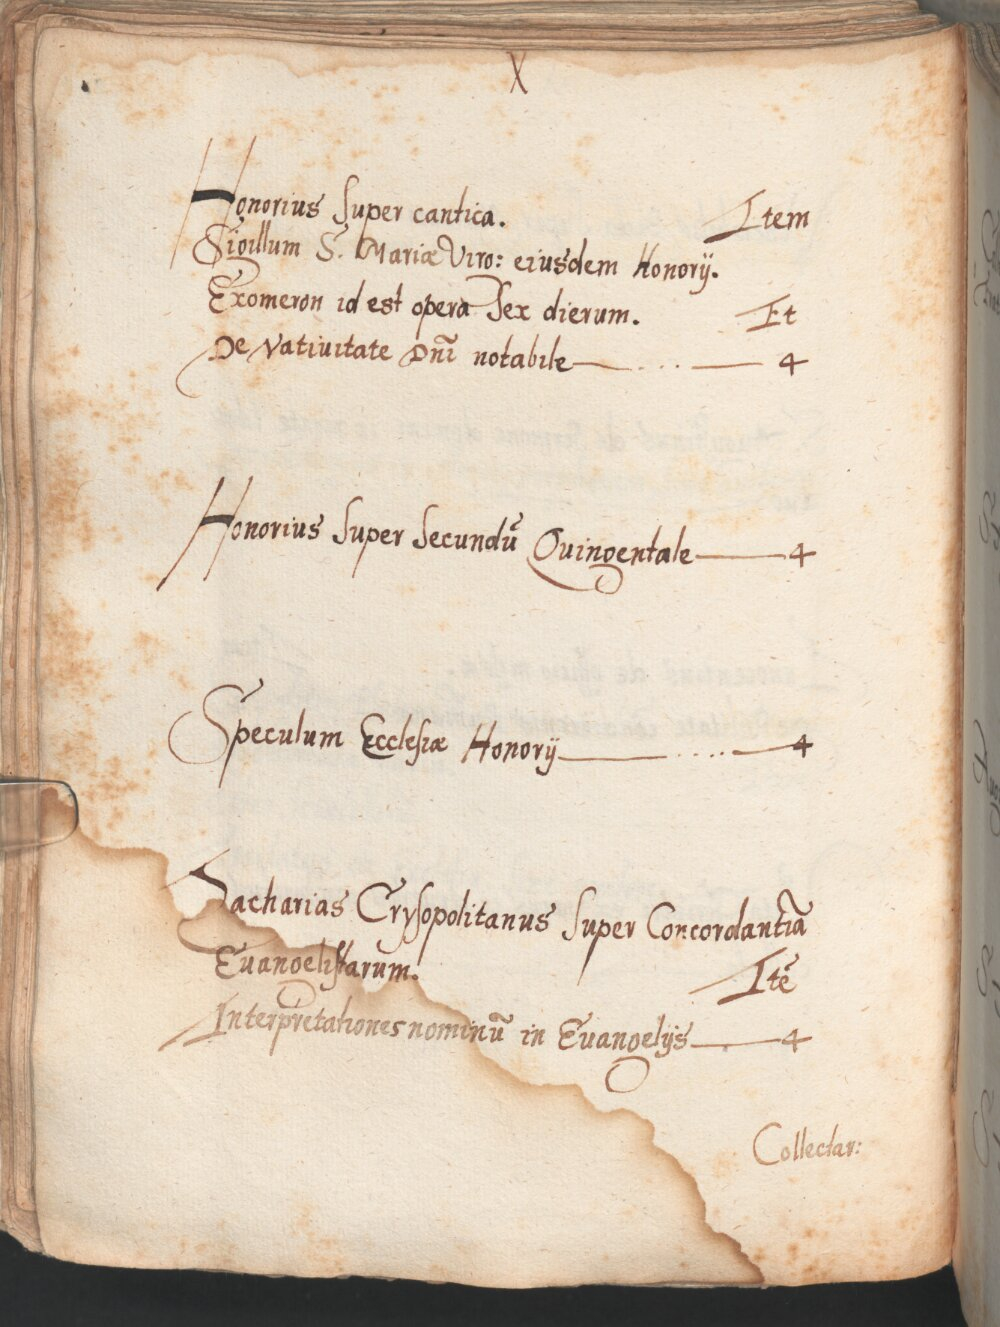 X
Honorius super cantica. Item
Sigillum S. Mariæ Virg: eiusdem Honorij.
Exomeron id est opera sex dierum. Et
De Natiuitate Dñi notabile — .... — 4
Honorius super secundũ Quingentale — 4
Speculum Ecclesiæ Honorij — .... — 4
Zacharias Crysopolitanus super Concordantiã
Euangelistarum. Itẽ
Interpretationes nominũ in Euangelijs — 4
Collectar: